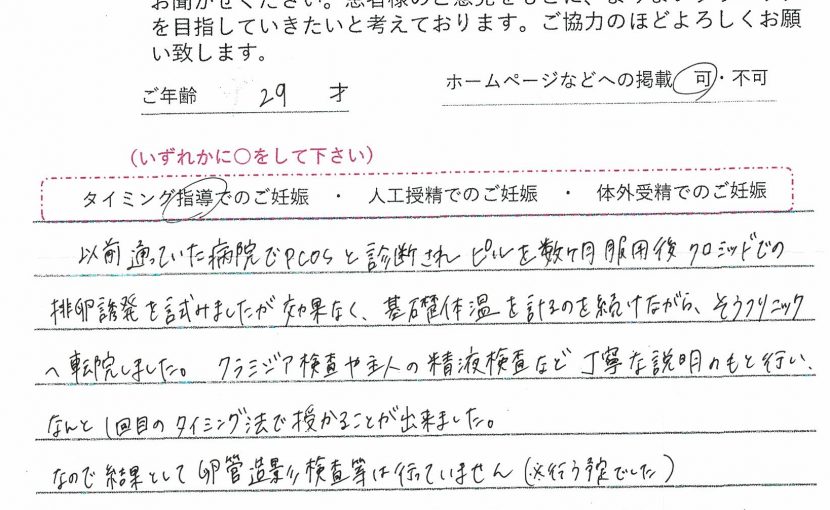 を目指していきたいと考えております。ご協力のほどよろしくお願
い致します。
ご年齢 29 才
ホームページなどへの掲載 可・不可
(いずれかに○をして下さい)
タイミング指導でのご妊娠 ・ 人工授精でのご妊娠 ・ 体外受精でのご妊娠
以前通っていた病院でPCOSと診断されピルを数ヶ月服用後クロミッドでの
排卵誘発を試みましたが効果なく、基礎体温を計るのを続けながら、そうクリニック
へ転院しました。クラミジア検査や主人の精液検査など丁寧な説明のもと行い、
なんと1回目のタイミング法で授かることが出来ました。
なので結果として卵管造影検査等は行っていません(※行う予定でした)